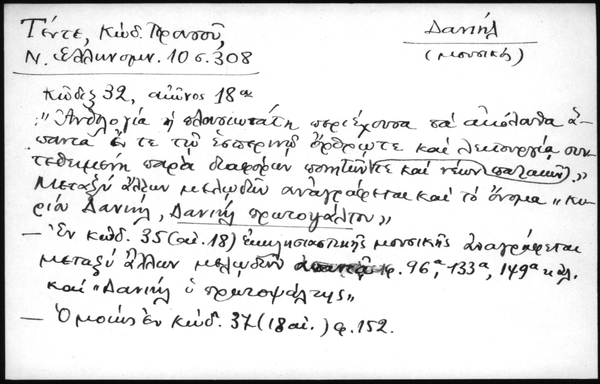 Τέντε, Κώδ. Πρωσοῦ, Δανιήλ
Ν. Ἑλληνομν. 10 σ. 308 (μουσική)
Κῶδιξ 32, αἰῶνος 18ου
„Ἀνθολογία ἡ πλουσιωτάτη περιέχουσα τά ἀκόλουθα ἅ-
παντα ἔν τε τῷ ἑσπερινῷ ὄρθρῳ τε καί λειτουργίᾳ συν-
τεθειμένη παρά διαφόρων ποιητῶν τε καί νέων παλαιῶν„
Μεταξύ ἄλλων μελῳδῶν ἀναγράφεται καί τό ὄνομα „κυ-
ρίου Δανιήλ, Δανιήλ πρωτοψάλτου„
— Ἐν κώδ. 35 (αἰ. 18) ἐκκλησιαστικῆς μουσικῆς ἀναγράφεται
μεταξύ ἄλλων μελῳδῶν φ. 96α, 133α, 149α κἄλ.
καί „Δανιήλ ὁ πρωτοψάλτης„
— Ὁμοίως ἐν κώδ. 37 (18 αἰ.) φ. 152.